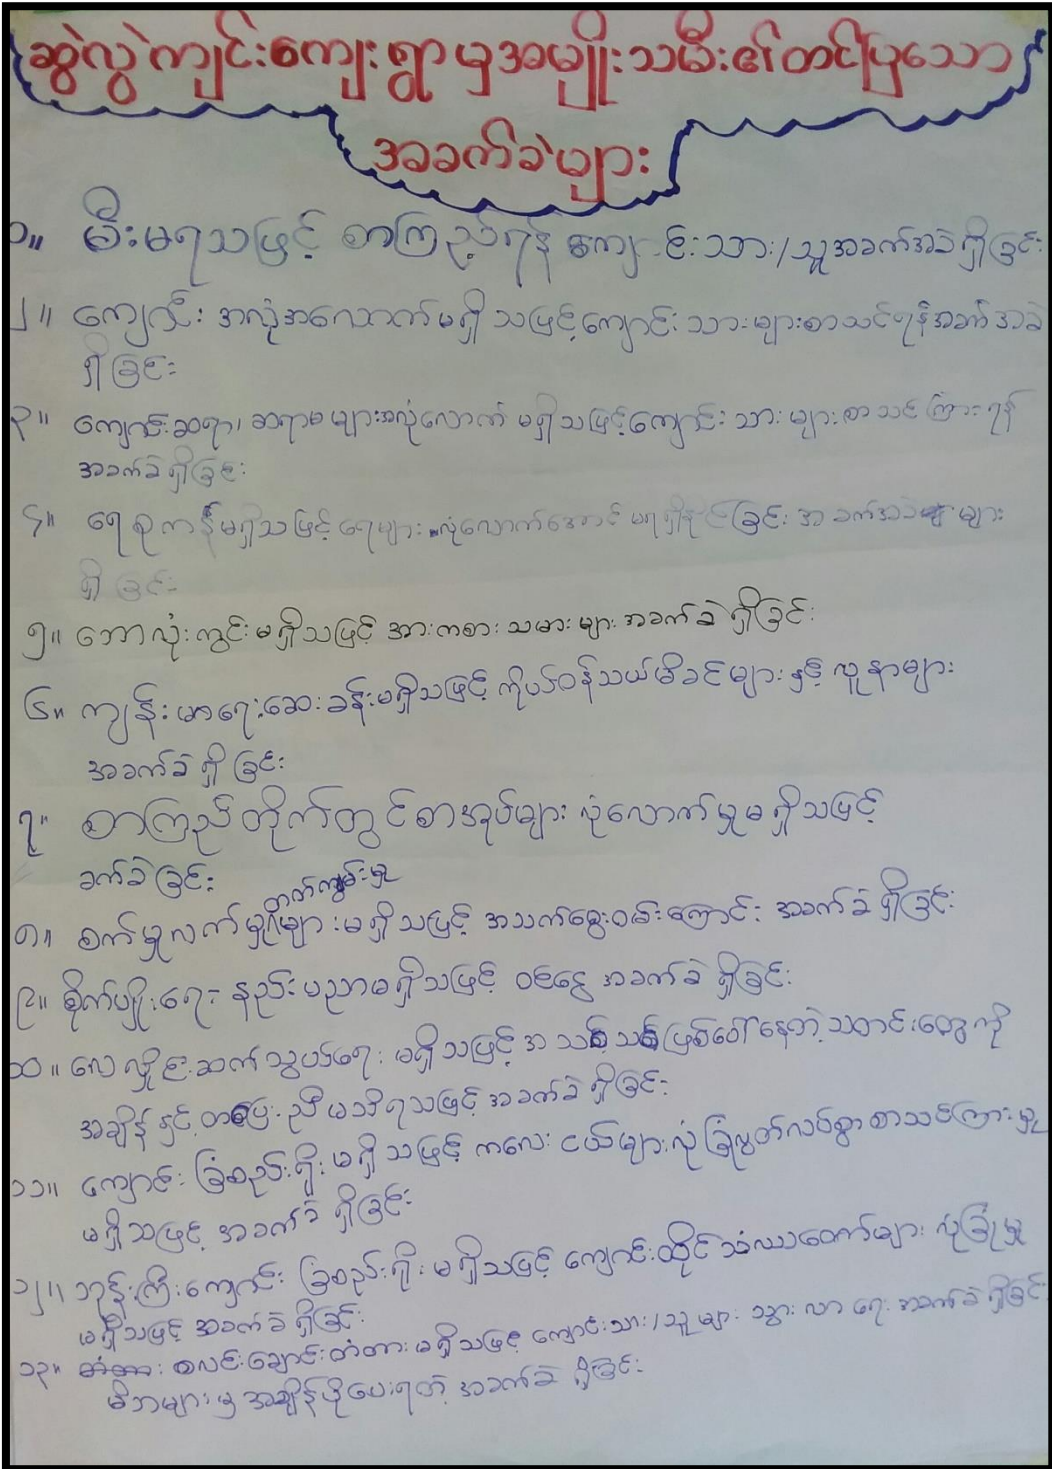 ဆွဲလွဲကျင်းကျေးရွာမှအမျိုးသမီး၏တင်ပြသော
အခက်ခဲများ
၁။ မီးမရသဖြင့် စာကြည့်ရန် ကျောင်းသား/သူအခက်အခဲရှိခြင်း
၂။ ကျောင်း အလုံအလောက်မရှိသဖြင့်ကျောင်းသားများစာသင်ရန်အခက်အခဲ
ရှိခြင်း
၃။ ကျောင်းဆရာ၊ ဆရာမများအလုံလောက် မရှိသဖြင့်ကျောင်းသားများစာသင်ကြားရန်
အခက်ခဲရှိခြင်း
၄။ ရေစုကန်မရှိသဖြင့်ရေများ လုံလောက်အောင် မရရှိနိုင်ခြင်း အခက်အခဲများ
ရှိခြင်း
၅။ ဘောလုံးကွင်းမရှိသဖြင့် အားကစားသမားများအခက်ခဲရှိခြင်း
၆။ ကျန်းမာရေးဆေးခန်းမရှိသဖြင့် ကိုယ်ဝန်သယ်မိခင်များနှင့် လူနာများ
အခက်ခဲရှိခြင်း
၇။ စာကြည်တိုက်တွင်စာအုပ်များ လုံလောက်မှုမရှိသဖြင့်
ခက်ခဲခြင်း
တက်ကျွမ်းမှု
၈။ စက်မှုလက်မှုများမရှိသဖြင့် အသက်မွေးဝမ်းကြောင်း အခက်ခဲရှိခြင်း
၉။ စိုက်ပျိုးရေး နည်းပညာမရှိသဖြင့် ဝင်ငွေ အခက်ခဲရှိခြင်း
၁၀။ လေလှိုင်းဆက်သွယ်ရေး မရှိသဖြင့် အသစ်သစ်ဖြစ်ပေါ်နေတဲ့ သတင်းတွေကို
အချိန်နှင့်တစ်ပြေးညီမသိရသဖြင့် အခက်ခဲရှိခြင်း
၁၁။ ကျောင်းခြံစည်းရိုး မရှိသဖြင့် ကလေးငယ်များလုံခြုံလွတ်လပ်စွာစာသင်ကြားမှု
မရှိသဖြင့် အခက်ခဲရှိခြင်း
၁၂။ ဘုန်းကြီးကျောင်း ခြံစည်းရိုးမရှိသဖြင့် ကျောင်းထိုင်သံဃာတော်များ လုံခြုံမှု
မရှိသဖြင့် အခက်ခဲရှိခြင်း
၁၃။ စလင်းချောင်းတံတားမရှိသဖြင့် ကျောင်းသား/သူများ သွားလာရေး အခက်ခဲရှိခြင်း
မိဘများမှအချိန်ပိုပေးရတဲ့ အခက်ခဲရှိခြင်း